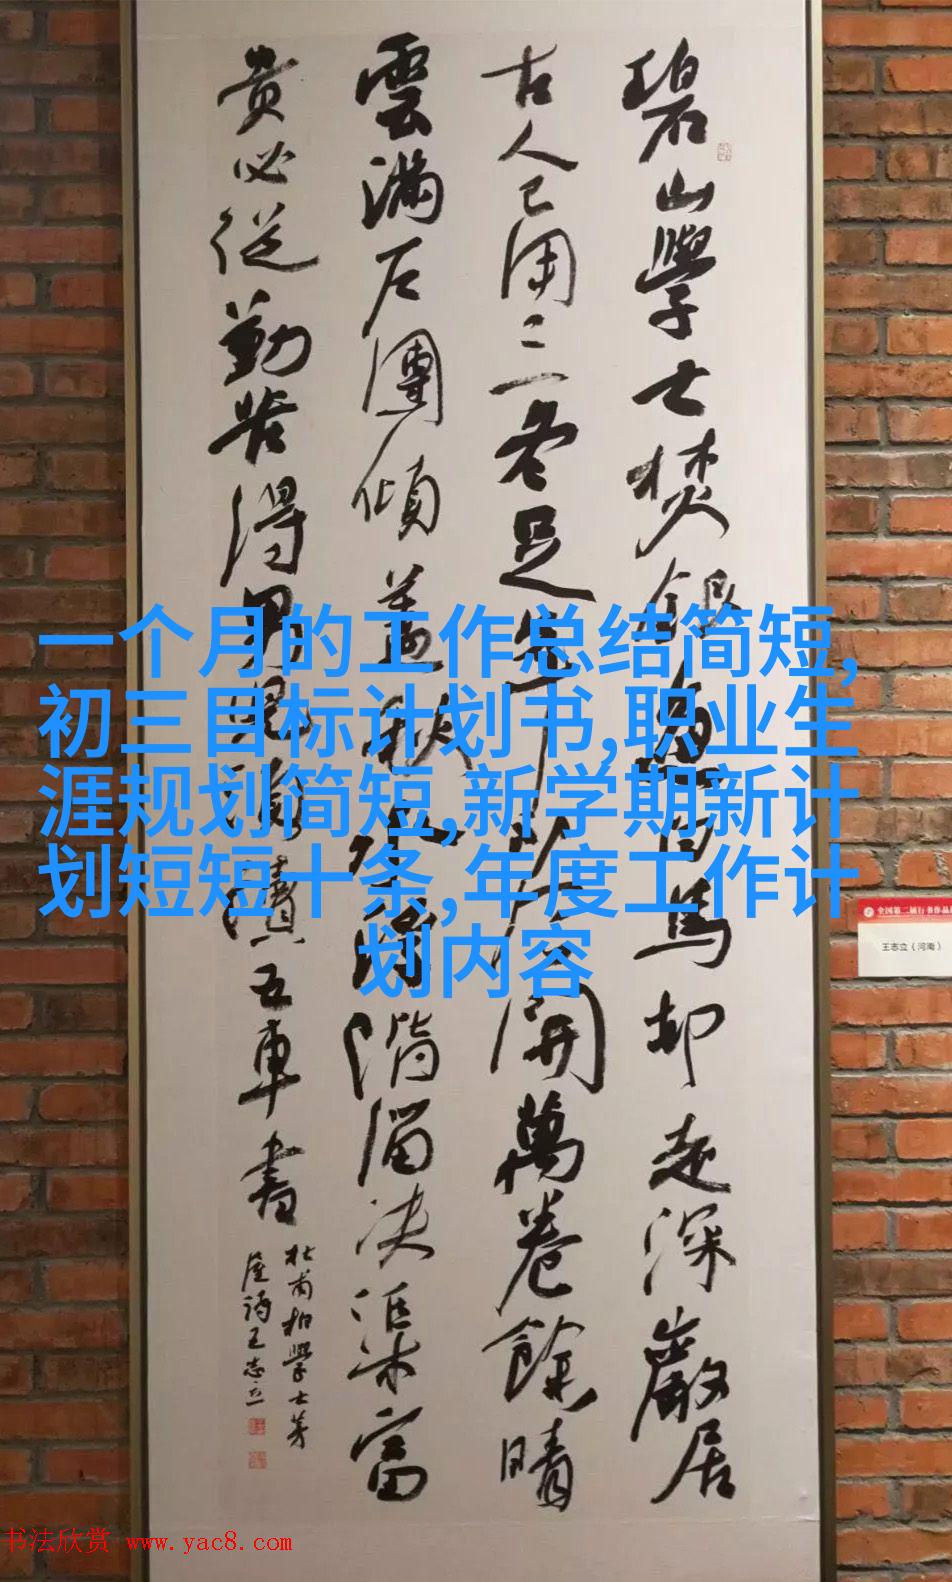 碧山學士焚銀魚白馬却走深巖居
古人已用三冬足年少今開萬卷餘晴
雲滿戶團傾蓋秋水浮階溜決渠富
貴必從勤苦得男兒須讀五車書
杜甫柏學士茅
屋詩王志立
一个月的工作总结简短,
初三目标计划书,职业生
涯规划简短,新学期新计
划短短十条,年度工作计
划内容
全国第二届行书作品展
王志立（河南）
书法欣赏 www.yac8.com